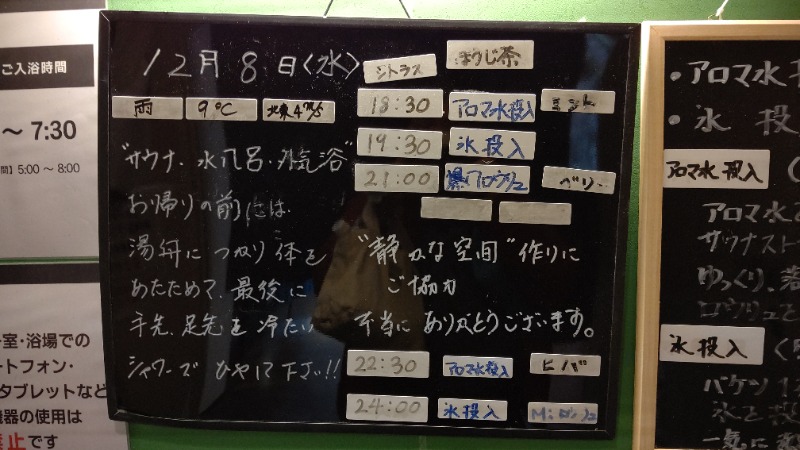 ご入浴時間
～ 7:30
間】5:00 ～ 8:00
室・浴場での
ートフォン・
タブレットなど
機器の使用は
禁止です
12月8日(水)
シトラス
ほうじ茶
雨 9℃ 北東4m/s
18:30 アロマ水投入 ミント
19:30 氷投入
21:00 爆アロウリュ ベリー
"サウナ・水風呂・外気浴"
お帰りの前には
湯舟につかり体を
あたためて、最後に
手先、足先を冷たい
シャワーでひやして下さい!!
"静かな空間"作りに
ご協力
本当にありがとうございます。
22:30 アロマ水投入 ヒバ
24:00 氷投入
・アロマ水
・氷投
アロマ水投入
アロマ水
サウナスト
ゆっくり、
ロウリュ
氷投入
バケツ1
氷を投
一気に